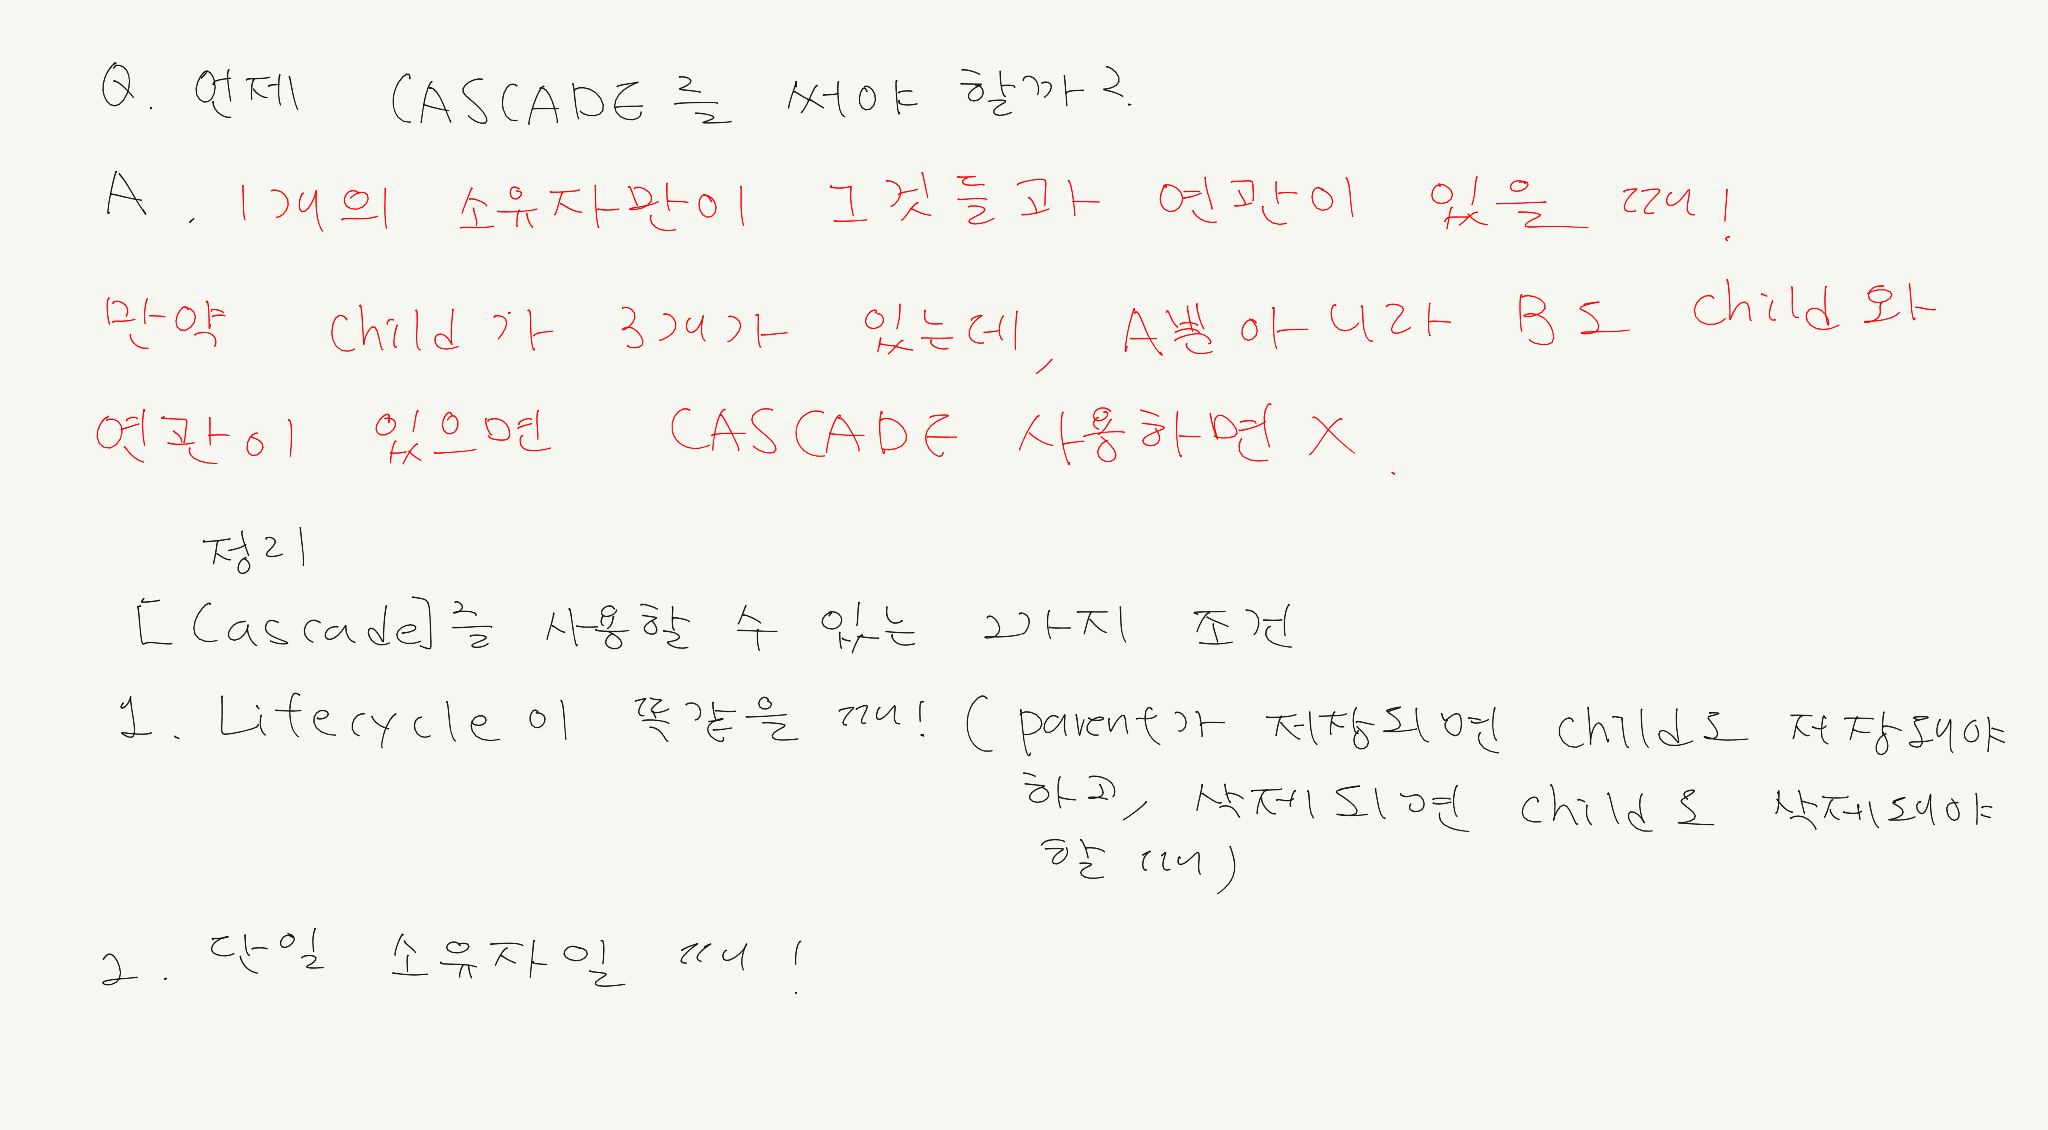 Q. 언제 CASCADE를 써야 할까?
A. 1개의 소유자만이 그것들과 연관이 있을 때!
만약 child가 3개가 있는데, A뿐아니라 B도 child와
연관이 있으면 CASCADE 사용하면 X.
정리
[Cascade]를 사용할 수 있는 2가지 조건
1. Lifecycle이 똑같을 때! (parent가 저장되면 child도 저장돼야
하고, 삭제되면 child도 삭제돼야
할 때)
2. 단일 소유자일 때!